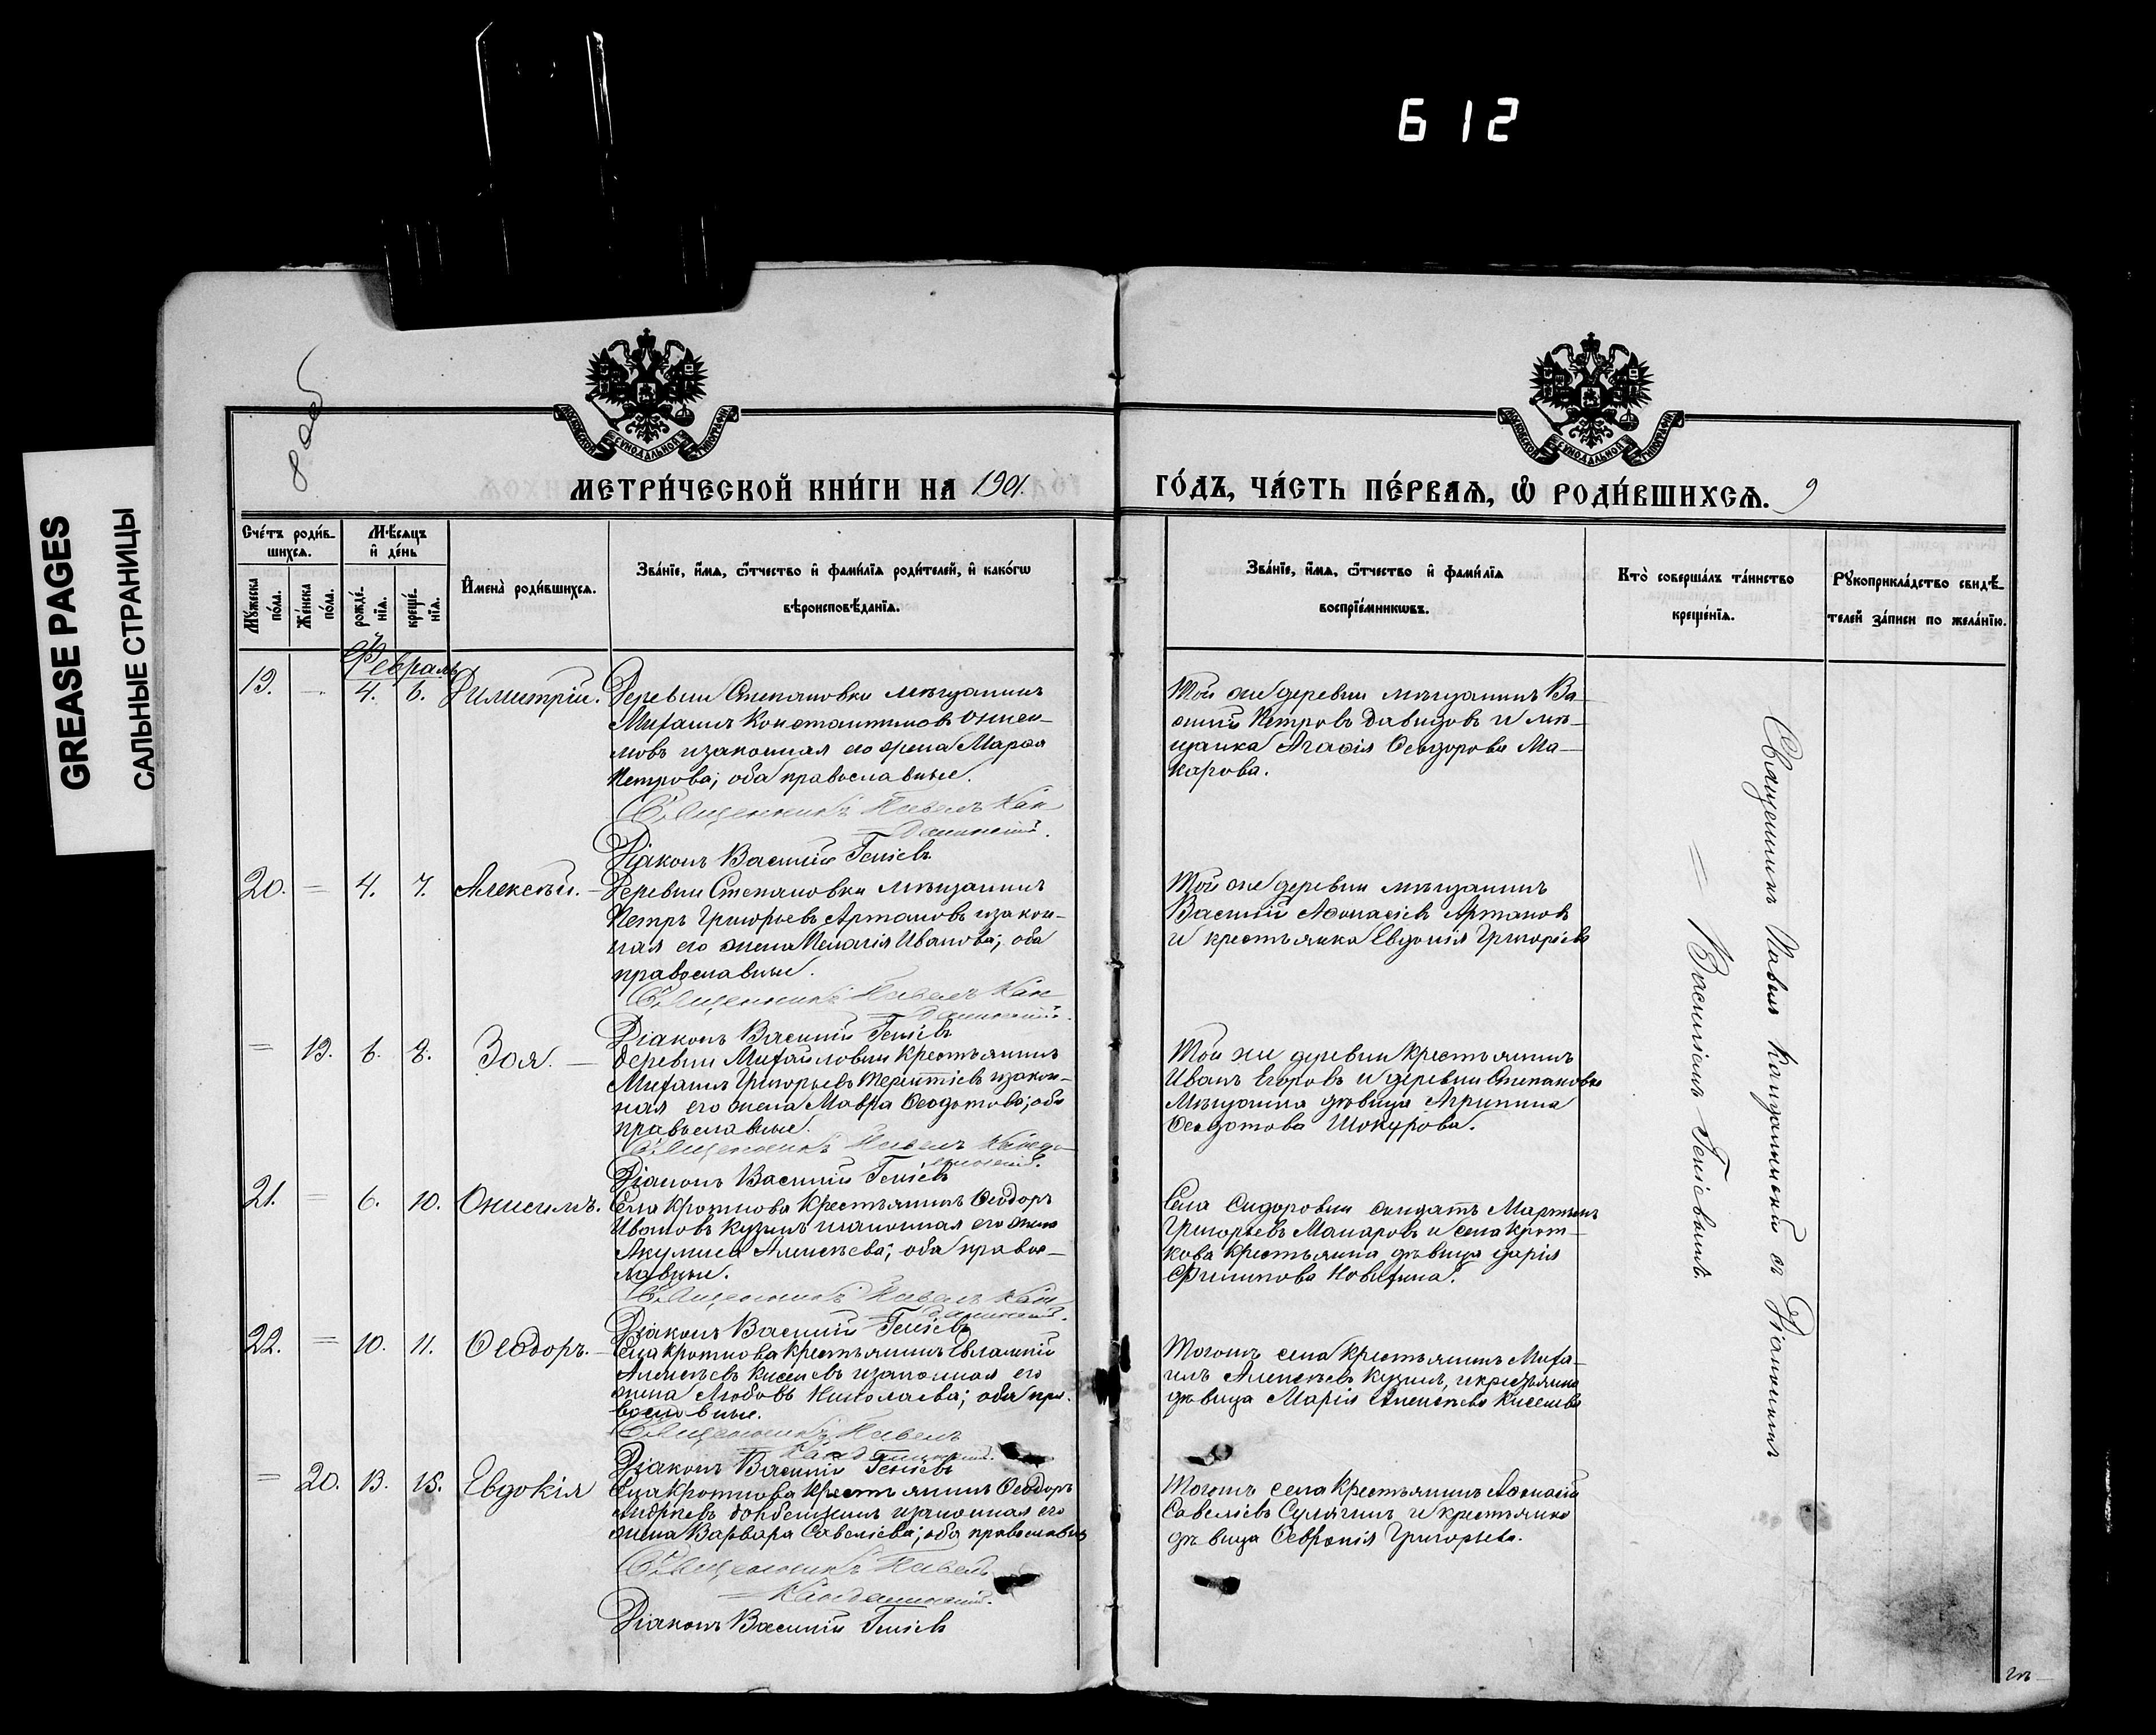 612
GREASE PAGES
САЛЬНЫЕ СТРАНИЦЫ
8 об
МОСКОВСКОЙ СѴНОДАЛЬНОЙ ТИПОГРАФІИ
МОСКОВСКОЙ СѴНОДАЛЬНОЙ ТИПОГРАФІИ
МЕТРИ́ЧЕСКОЙ КНИ́ГИ НА 1901.
ГО́ДЪ, ЧА́СТЬ ПЕ́РВАѦ, Ѽ РОДИ́ВШИХСѦ. 9
Сче́тъ роди́в-
шихсѧ.
Мꙋжеска по́ла.
Же́нска по́ла.
Мѣ́сѧцъ
и҆ де́нь
рожде́-
нїѧ.
креще́-
нїѧ.
И҆мена̀ роди́вшихсѧ.
Зва́нїе, и҆́мѧ, ѻ҆́тчество и҆ фами́лїѧ роди́телей, и҆ како́гѡ
вѣроисповѣ́данїѧ.
Зва́нїе, и҆́мѧ, ѻ҆́тчество и҆ фами́лїѧ
воспрїе́мникѡвъ.
Кто̀ соверша́лъ та́инство
креще́нїѧ.
Рꙋкоприкла́дство свидѣ́-
телей за́писи по жела́нїю.
Февраль
19. — 4. 6. Димитрій.
Деревни Степановки мѣщанинъ
Михаилъ Константиновъ
и законная его жена Марѳа
Петрова; оба православные.
Священникъ Павелъ Кан-
далинскій.
Діаконъ Василій Генісвъ
Той же деревни мѣщанинъ Ва-
силій Петровъ Давыдовъ и мѣ-
щанка Агаѳія Ѳеодорова Ма-
карова.
20. = 4. 7. Алексѣй. —
Деревни Степановки мѣщанинъ
Петръ Григорьевъ Артамовъ и закон-
ная его жена Пелагія Иванова; оба
православные.
Священникъ Павелъ Кан-
далинскій.
Діаконъ Василій Геніевъ
Той же деревни мѣщанинъ
Василій Аѳонасіевъ Артамовъ
и крестьянка Евдокія Григорьева
= 19. 6. 8. Зоя. —
Деревни Михайловки крестьянинъ
Михаилъ Григорьевъ Терентіевъ и закон-
ная его жена Мавра Ѳеодотова; оба
православные.
Священникъ Павелъ Канда-
линскій.
Діаконъ Василій Геніевъ
Той же деревни крестьянинъ
Иванъ Егоровъ и деревни Степановки
мѣщанка дѣвица Агрипина
Ѳеодотова Шокурова.
21. = 6. 10. Онисимъ.
Села Кроткова крестьянинъ Ѳеодоръ
Ивановъ Кузинъ и законная его жена
Акулина Алексѣева; оба правос-
лавные.
Священникъ Павелъ Кан-
далинскій.
Діаконъ Василій Геніевъ
Села Сидоровки солдатъ Мартынъ
Григорьевъ Макаровъ и села Крот-
кова крестьянка дѣвица Дарія
Филипова
22. = 10. 11. Ѳеодоръ. —
Села Кроткова крестьянинъ Евлампій
Алексѣевъ Киселевъ и законная его
жена Любовь Николаева; оба пра-
вославные.
Священникъ Павелъ
Кандалинскій.
Діаконъ Василій Геніевъ
Тогожъ села крестьянинъ Миха-
илъ Алексѣевъ Кузинъ, и крестьянка
дѣвица Марія Алексѣева Киселева
= 20. 13. 15. Евдокія
Села Кроткова крестьянинъ Ѳеодоръ
Андреевъ и законная его
жена Варвара Савелїева; оба православные
Священникъ Павелъ
Кандалинскій.
Діаконъ Василій Геніевъ
Тогожъ села крестьянинъ Аѳонасій
Савеліевъ Сулягинъ и крестьянка
дѣвица Ѳевронія Григорьева.
Священникъ Павелъ Кандалинскій съ Діакономъ
= Василіемъ Геніевымъ.